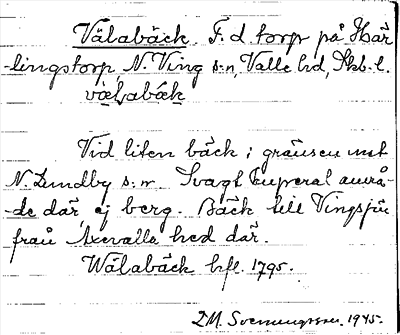 Välabäck F. d. torp på Här
-lingstorp, N. Ving s:n, Valle hd, Skb. l.
vælabäk
Vid liten bäck i gränsen mot
N. Lundby s:n Svagt kuperat områ-
-de där, ej berg. Bäck till Vingsjön
från Axevalla hed där.
Wälabäck hfl. 1795.
1945.